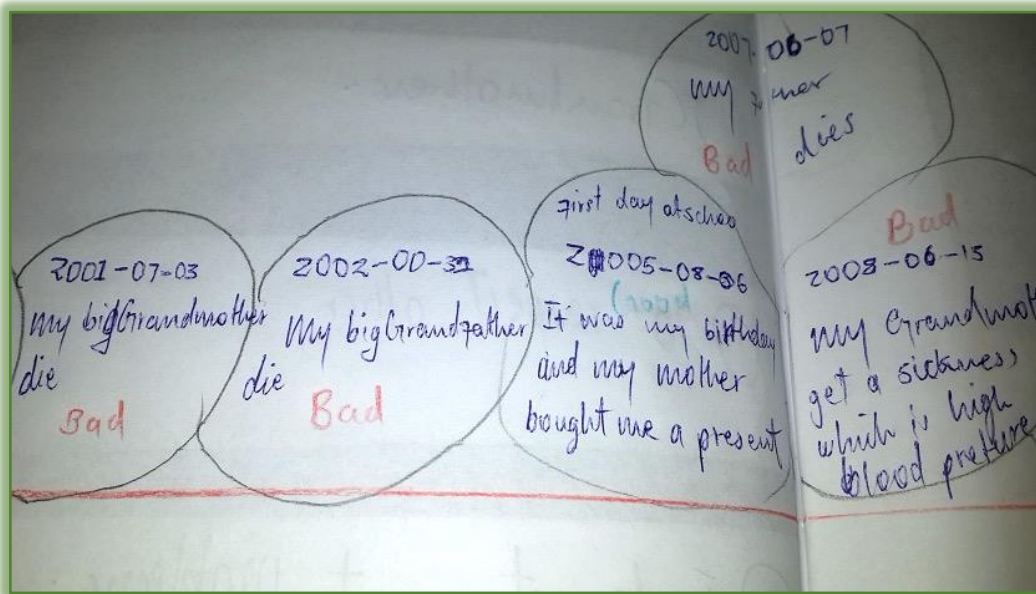 2001-07-03
my bigGrandmother
die
Bad
2002-00-32
My bigGrandfather
die
Bad
First day at schoo
2005-08-06
Good
It was my birthday
and my mother
bought me a present
2007-06-07
my
dies
Bad
Bad
2008-06-15
my Grandmot
get a sickness,
which is high
blood preture